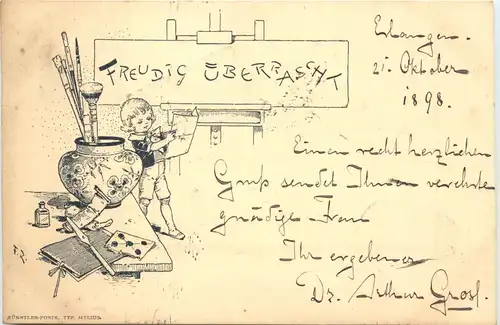 FREUDIG ÜBERRASCHT
Erlangen.
21. Oktober
1898.
Einen recht herzlichen
Gruß sendet Ihnen verehrte
gnädige Frau
Ihr ergebener
Dr. Arthur
F.R.
KÜNSTLER-POSTK. TYP. MILIUS.